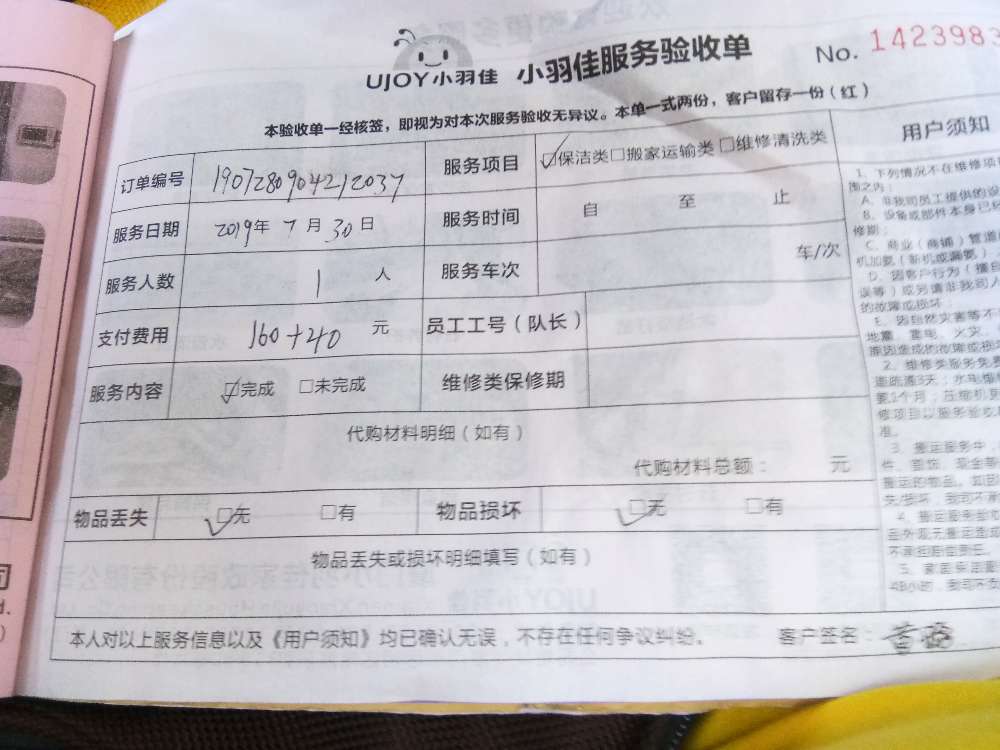 UJOY小羽佳 小羽佳服务验收单 No. 1423983
本验收单一经核签，即视为对本次服务验收无异议。本单一式两份，客户留存一份（红）
订单编号 1907280904212037 服务项目 ☑保洁类□搬家运输类□维修清洗类
服务日期 2019年 7月30日 服务时间 自 至 止
服务人数 1 人 服务车次 车/次
支付费用 160+40 元 员工工号（队长）
服务内容 ☑完成 □未完成 维修类保修期
代购材料明细（如有）
代购材料总额： 元
物品丢失 ☑无 □有 物品损坏 ☑无 □有
物品丢失或损坏明细填写（如有）
本人对以上服务信息以及《用户须知》均已确认无误，不存在任何争议纠纷。 客户签名：
用户须知
1、下列情况不在维修项
围之内：
A、非我司员工提供的设
B、设备或部件本身已
修期；
C、商业（商铺）管道
机加氨（新机或漏氨）
D、因客户行为（擅自
误等）或另请非我司人
的故障或损坏；
E、因自然灾害等不
地震、雷电、火灾、
原因造成的故障或损
2、维修类服务免
道疏通3天；水电维
氨3个月；压缩机更
修项目以服务验收
准。
3、搬运服务中，
件、首饰、现金等
搬运的物品。如因
失/损坏，我司不
4、搬运服务验
品外观无搬运造成
不承担赔偿责任。
5、家居保洁服
48小时，我司不